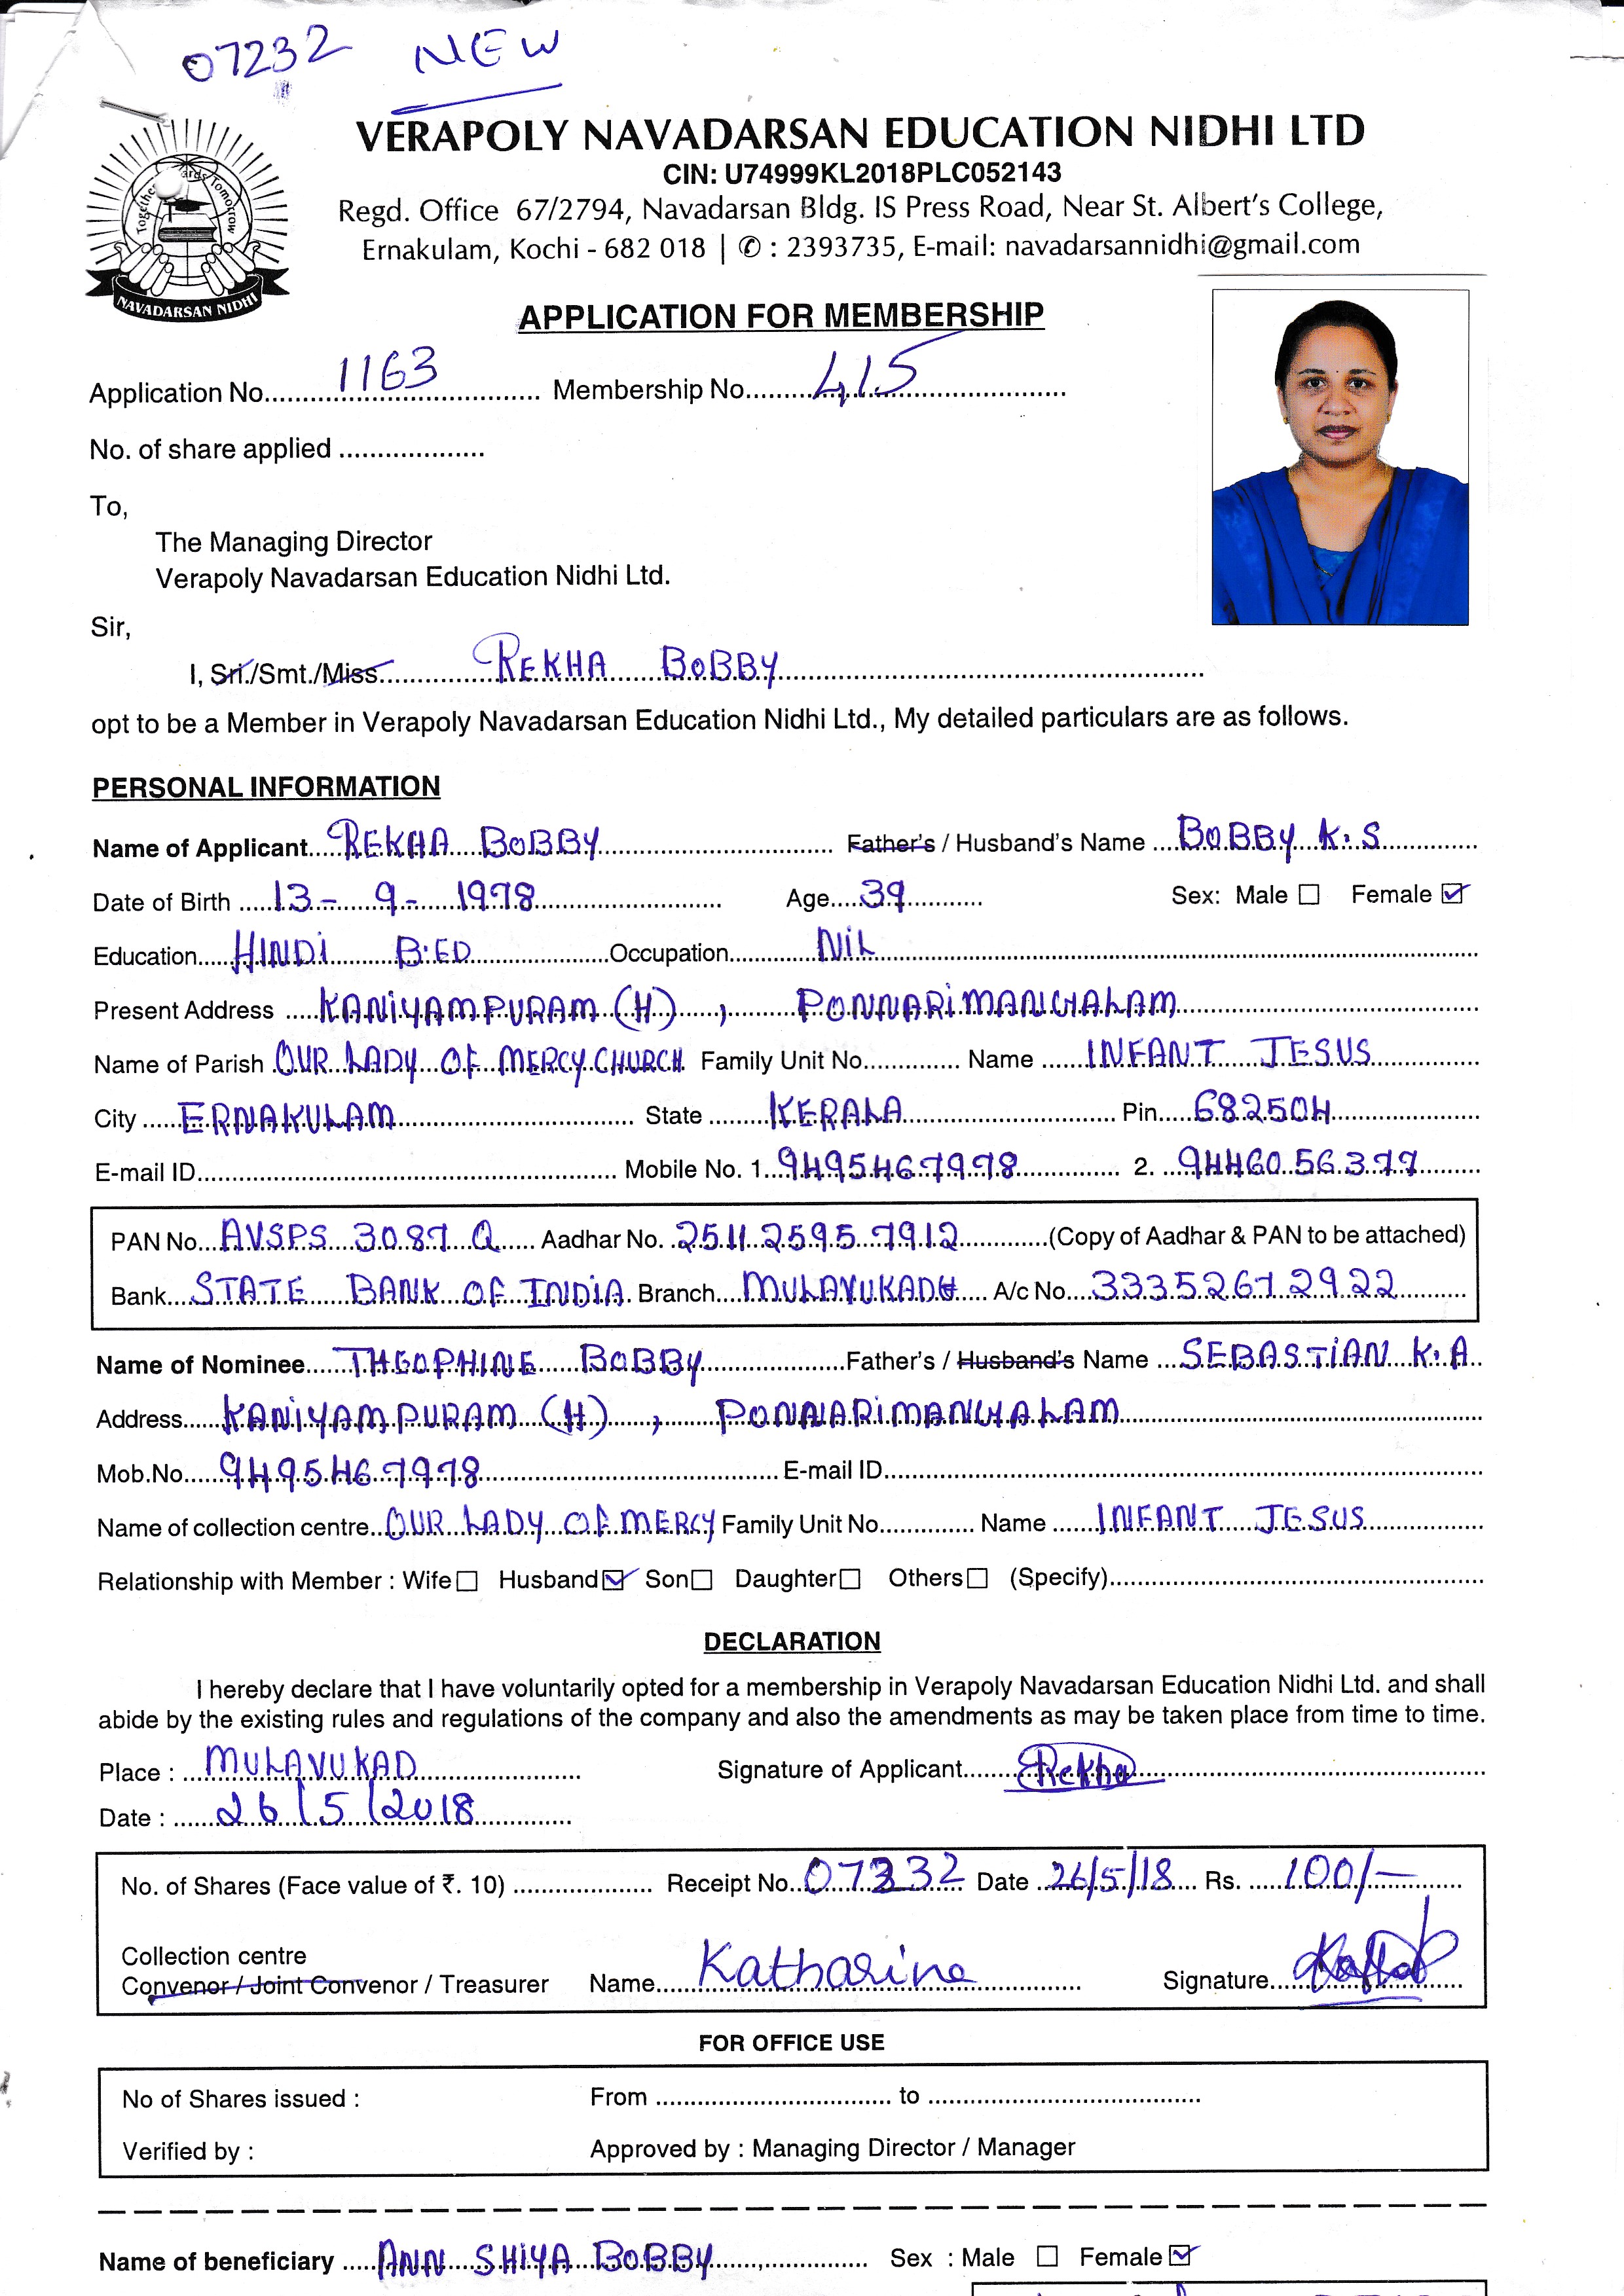 07232 NEW
Together Towards Tomorrow
NAVADARSAN NIDHI
VERAPOLY NAVADARSAN EDUCATION NIDHI LTD
CIN: U74999KL2018PLC052143
Regd. Office 67/2794, Navadarsan Bldg. IS Press Road, Near St. Albert's College,
Ernakulam, Kochi - 682 018 | ✆ : 2393735, E-mail: navadarsannidhi@gmail.com
APPLICATION FOR MEMBERSHIP
Application No. 1163 Membership No. 415
No. of share applied
To,
The Managing Director
Verapoly Navadarsan Education Nidhi Ltd.
Sir,
I, Sri./Smt./Miss. REKHA BOBBY
opt to be a Member in Verapoly Navadarsan Education Nidhi Ltd., My detailed particulars are as follows.
PERSONAL INFORMATION
Name of Applicant REKHA BOBBY Father's / Husband's Name BOBBY K.S
Date of Birth 13 - 9 - 1978 Age 39 Sex: Male ☐ Female ☑
Education HINDI B.ED Occupation NIL
Present Address KANIYAMPURAM (H) , PONNARIMANGALAM
Name of Parish OUR LADY OF MERCY CHURCH Family Unit No. Name INFANT JESUS
City ERNAKULAM State KERALA Pin 682504
E-mail ID Mobile No. 1. 9495467978 2. 9446056377
PAN No. AVSPS 3087 Q Aadhar No. 2511 2595 7912 (Copy of Aadhar & PAN to be attached)
Bank STATE BANK OF INDIA Branch MULAVUKAD A/c No. 33352672922
Name of Nominee THEOPHINE BOBBY Father's / Husband's Name SEBASTIAN K.A
Address KANIYAMPURAM (H) , PONNARIMANGALAM
Mob.No. 9495467978 E-mail ID
Name of collection centre OUR LADY OF MERCY Family Unit No. Name INFANT JESUS
Relationship with Member : Wife ☐ Husband ☑ Son ☐ Daughter ☐ Others ☐ (Specify)
DECLARATION
I hereby declare that I have voluntarily opted for a membership in Verapoly Navadarsan Education Nidhi Ltd. and shall
abide by the existing rules and regulations of the company and also the amendments as may be taken place from time to time.
Place : MULAVUKAD Signature of Applicant Rekha
Date : 26/5/2018
No. of Shares (Face value of ₹. 10) Receipt No. 07232 Date 26/5/18 Rs. 100/-
Collection centre
Convenor / Joint Convenor / Treasurer Name Katharine Signature
FOR OFFICE USE
No of Shares issued : From to
Verified by : Approved by : Managing Director / Manager
Name of beneficiary ANN SHIYA BOBBY Sex : Male ☐ Female ☑